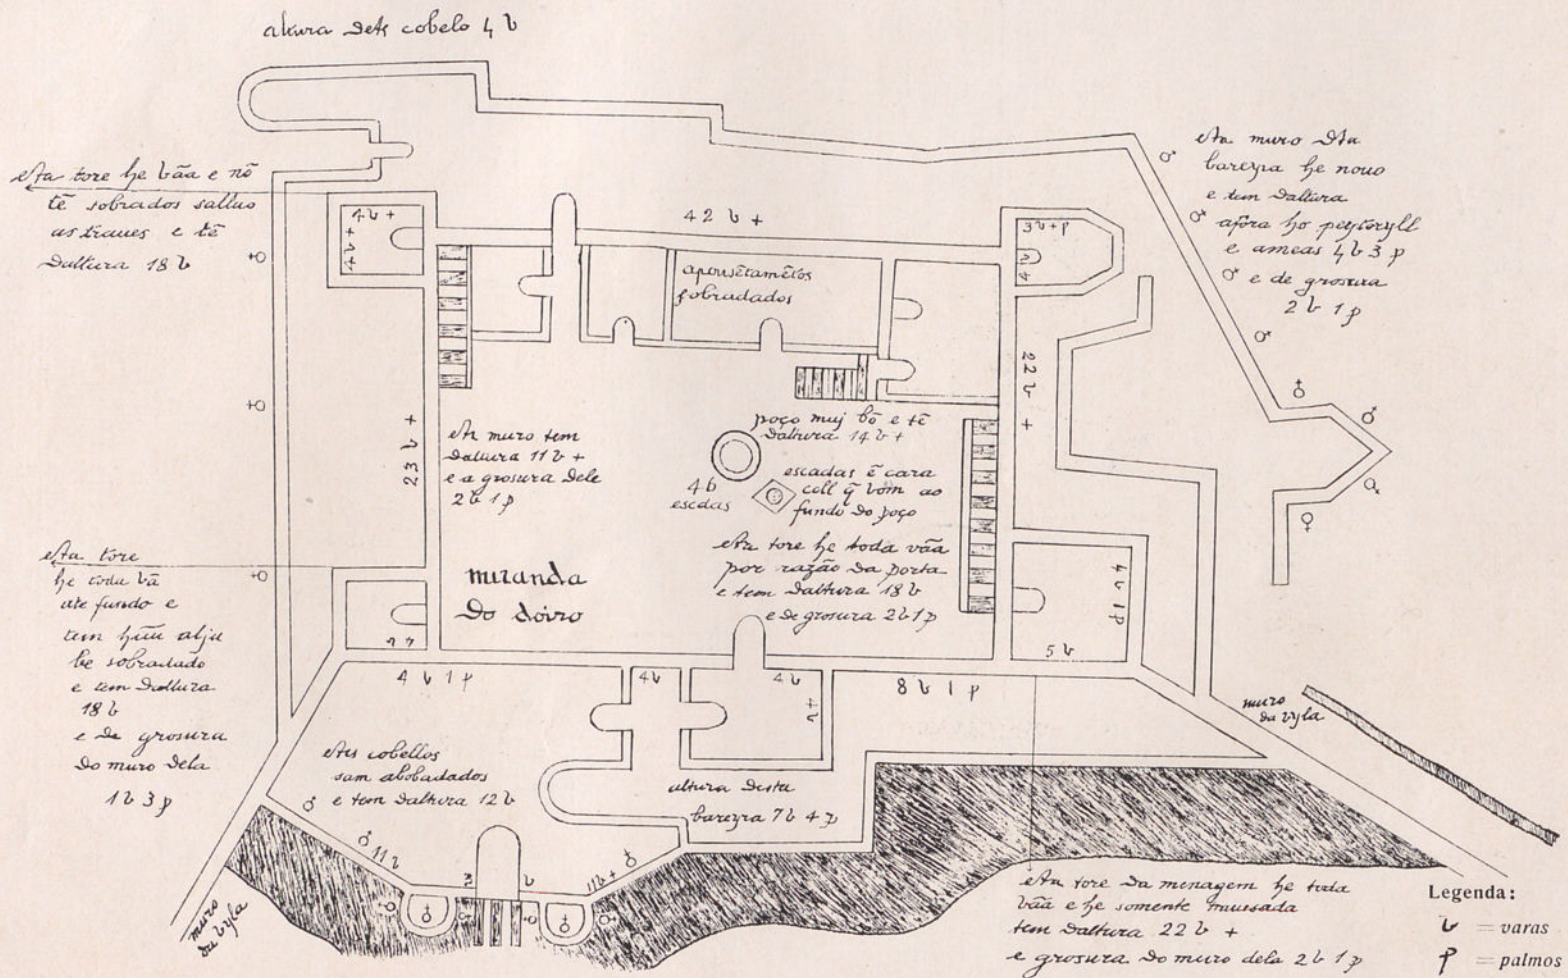 altura deste cobelo 4 b
esta tore he bãa e nõ
tẽ sobrados salluo
as traues e tẽ
daltura 18 b
4 b +
42 b +
3 b + p
esta muro dsta
bareyra he nouo
e tem daltura
afora ho peytoryll
e ameas 4 b 3 p
e de grosura
2 b 1 p
apousẽtamẽtos
sobradados
22 b +
23 b +
este muro tem
daltura 11 b +
e a grosura dele
2 b 1 p
poço muj bõ e tẽ
daltura 14 b +
4 b
escdas
escadas ẽ cara
coll q̃ vom ao
fundo do poço
esta tore he toda vãa
por razão da porta
e tem daltura 18 b
e de grosura 2 b 1 p
miranda
do doiro
esta tore
he toda vã
ate fundo e
tem hũu alju
be sobradado
e tem daltura
18 b
e de grosura
do muro dela
1 b 3 p
4 b 1 p
5 b
4 b 1 p
4 b
4 b
8 b 1 p
muro
da vyla
estes cobellos
sam abobadados
e tem daltura 12 b
altura desta
bareyra 7 b 4 p
11 b
3 b
11 b +
muro
da vyla
esta tore da menagem he toda
vãa e he somente
tem daltura 22 b +
e grosura do muro dela 2 b 1 p
Legenda:
b = varas
p = palmos